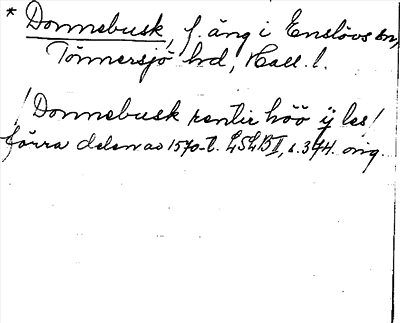 * Donnebusk, f. äng i Enslövs sn,
Tönnersjö hd, Hall. l.
/Donnebusk rentir höö ij les/
förra delen av 1570-t. LSLB II, s. 394. orig.